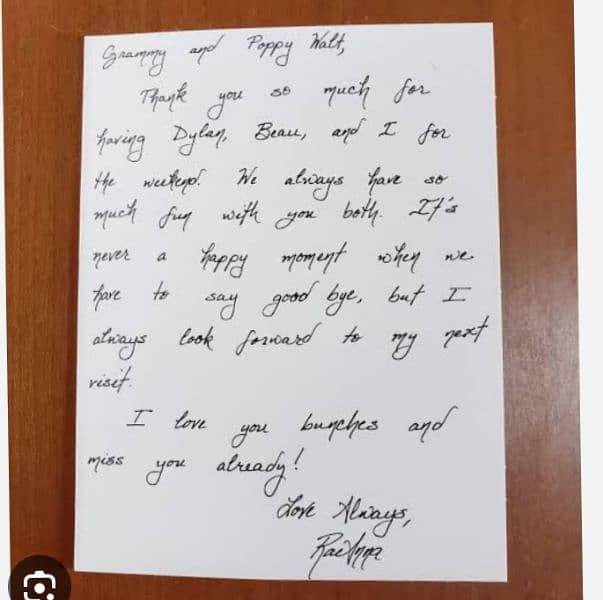 Grammy and Poppy Walt,
Thank you so much for
having Dylan, Beau, and I for
the weekend! We always have so
much fun with you both. It's
never a happy moment when we
have to say good bye, but I
always look forward to my next
visit.
I love you bunches and
miss you already!
Love Always,
RaeAnna